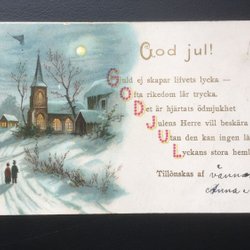 God jul!
Guld ej skapar lifvets lycka —
Ofta rikedom lär trycka.
Det är hjärtats ödmjukhet
Julens Herre vill beskära
Utan den kan ingen lä
Lyckans stora heml
Tillönskas af
vänne
Anna